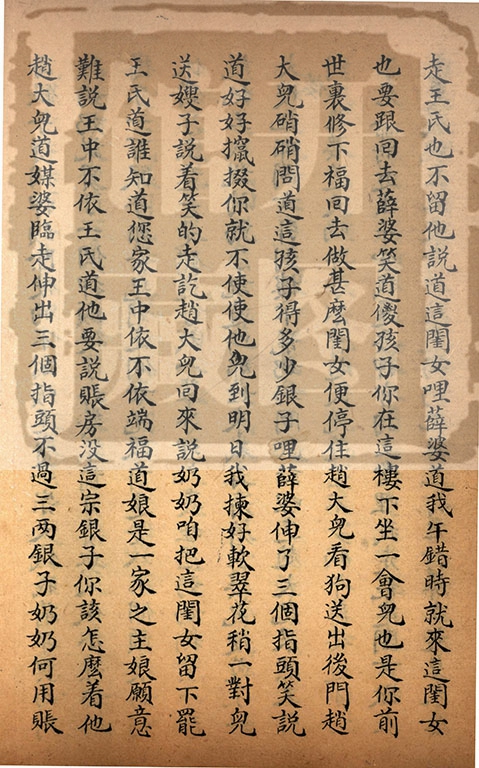 走王氏也不留他說道這閨女哩薛婆道我午錯時就來這閨女
也要跟回去薛婆笑道傻孩子你在這樓下坐一會兒也是你前
世裏修下福回去做甚麽閨女便停住趙大兒看狗送出後門趙
大兒硝硝問道這孩子得多少銀子哩薛婆伸了三個指頭笑說
道好好攛掇你就不使使他兒到明日我揀好軟翠花稍一對兒
送嫂子說着笑的走訖趙大兒回來說奶奶咱把這閨女留下罷
王氏道誰知道您家王中依不依端福道娘是一家之主娘願意
難說王中不依王氏道他要說賬房没這宗銀子你該怎麽着他
趙大兒道媒婆臨走伸出三個指頭不過三两銀子奶奶何用賬